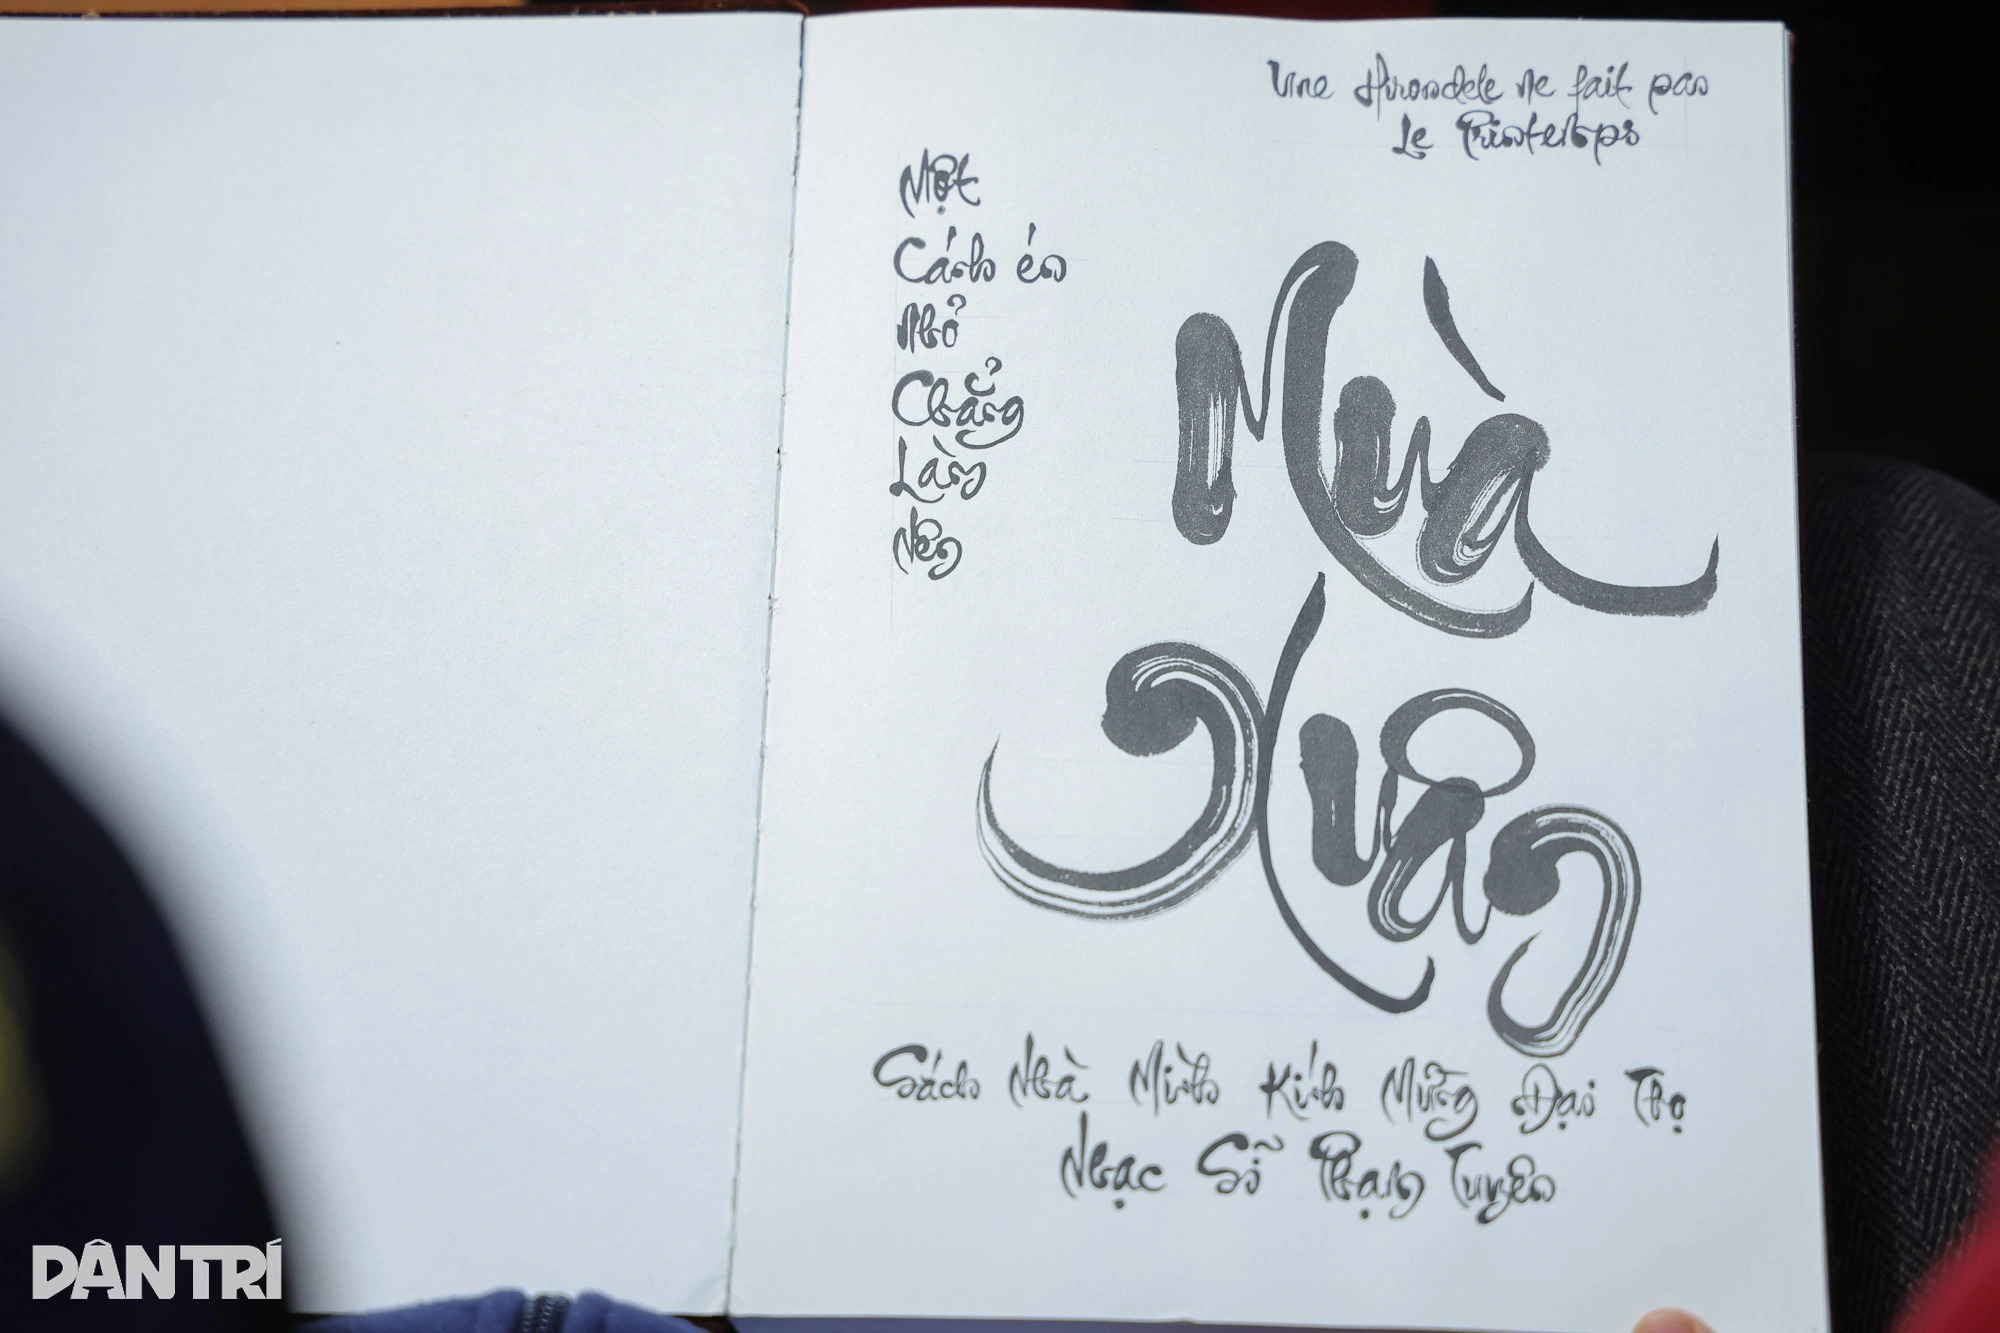 Une Hirondele ne fait pas
Le Printemps
Một
Cánh én
Nhỏ
Chẳng
Làm
Nên
Mùa
Xuân
Sách Nhà Mình Kính Mừng Đại Thọ
Nhạc Sĩ Phạm Tuyên
DÂN TRÍ